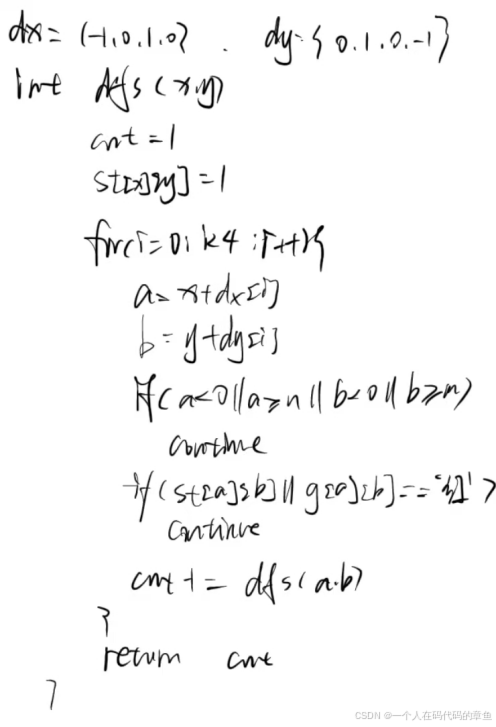 dx = {-1,0,1,0}, dy={0,1,0,-1}
int dfs(x,y)
cnt=1
st[x][y]=1
for(i=0;i<4;i++){
a=x+dx[i]
b=y+dy[i]
if(a<0||a≥n||b<0||b≥m)
continue
if(st[a][b]||g[a][b]=='红')
continue
cnt+=dfs(a,b)
}
return cnt
}
CSDN @一个人在码代码的章鱼